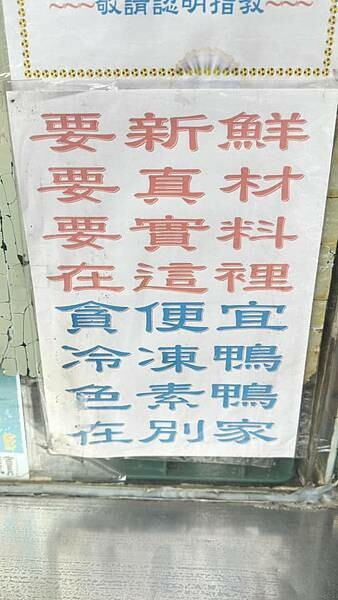 敬請認明指教
要新鮮
要真材
要實料
在這裡
貪便宜
冷凍鴨
色素鴨
在別家